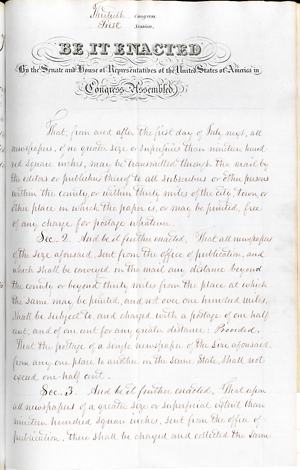 Thirtieth Congress
First Session
BE IT ENACTED
By the Senate and House of Representatives of the United States of America in
Congress Assembled,
That, from and after the first day of July next, all
newspapers, of no greater size or superficies than nineteen hund
red square inches, may be transmitted through the mail by
the editors or publishers thereof to all subscribers or other persons
within the county, or within thirty miles of the city, town, or
other place in which the paper is, or may be printed, free
of any charge for postage whatever.
Sec. 2. And be it further enacted, That all newspapers
of the size aforesaid, sent from the office of publication, and
which shall be conveyed in the mail any distance beyond
the county or beyond thirty miles from the place at which
the same may be printed, and not over one hundred miles,
shall be subject to, and charged with a postage of one half
cent, and of one cent for any greater distance: Provided,
That the postage of a single newspaper of the size aforesaid
from any one place to another in the same State, shall not
exceed one half cent.
Sec. 3. And be it further enacted, That upon
all newspapers of a greater size or superficial extent than
nineteen hundred square inches, sent from the office of
publication, there shall be charged and collected the same